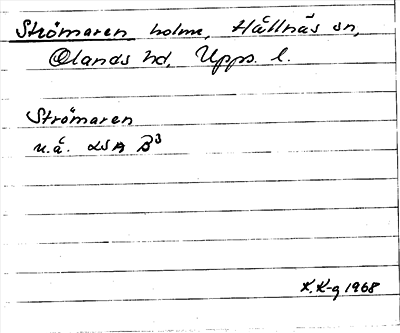 Strömaren holme, Hållnäs sn,
Olands hd, Upps. l.
Strömaren
u.å. LSA B³
K. K-g 1968